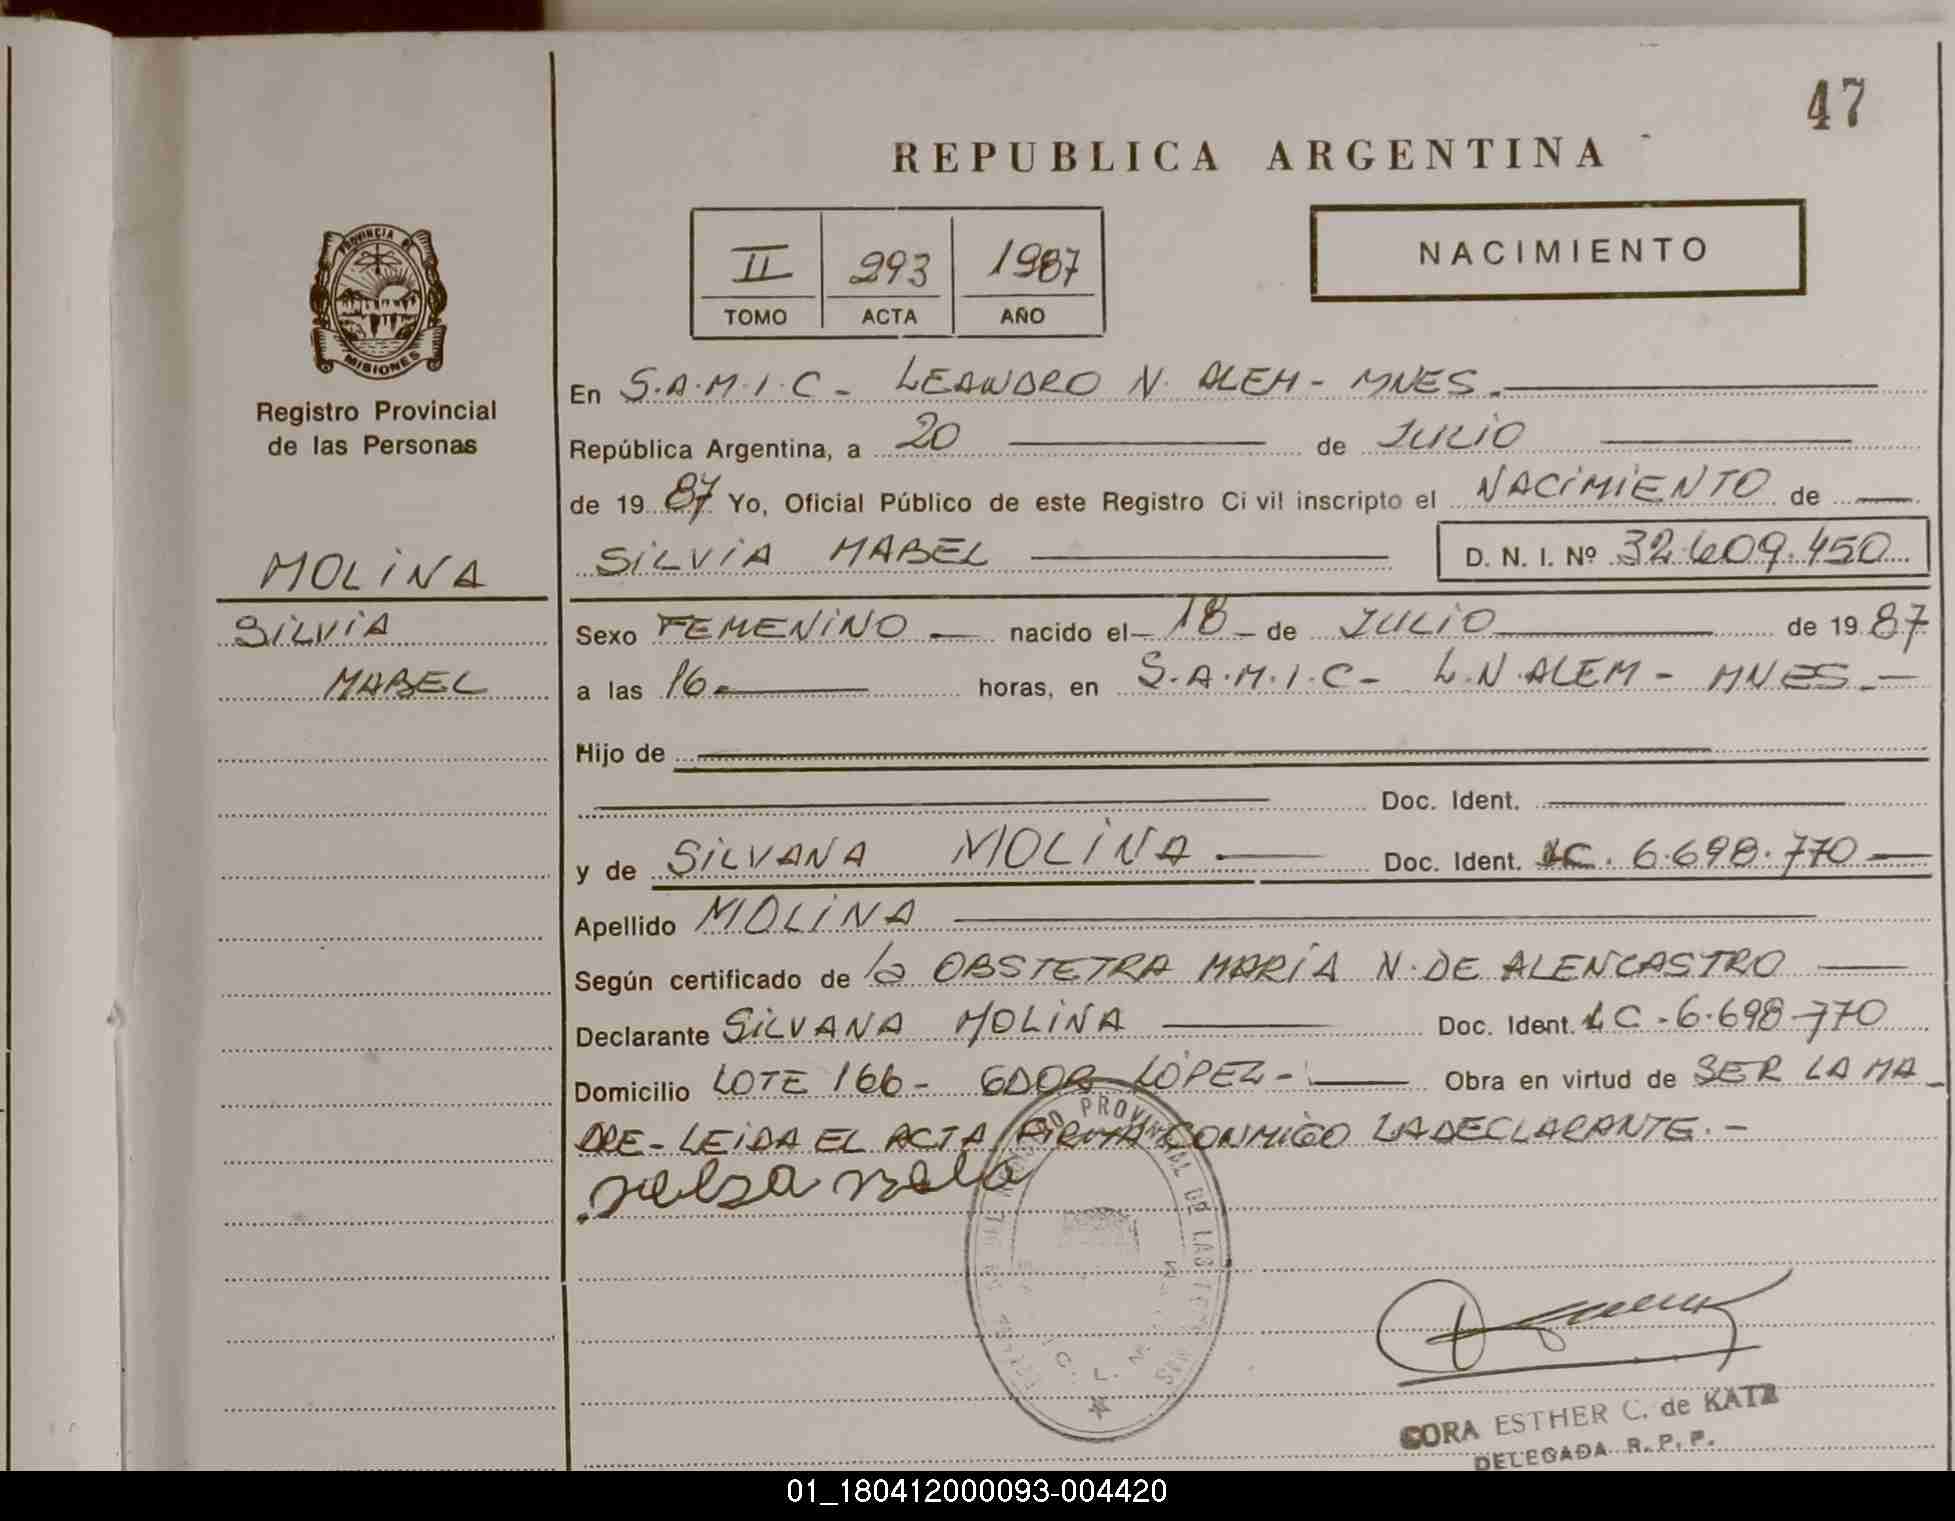 47
REPUBLICA ARGENTINA
II 293 1987
TOMO ACTA AÑO
NACIMIENTO
PROVINCIA DE
MISIONES
Registro Provincial
de las Personas
MOLINA
SILVIA
MABEL
En S.A.M.I.C - LEANDRO N. ALEM - MNES.
República Argentina, a 20 de JULIO
de 19 87 Yo, Oficial Público de este Registro Civil inscripto el NACIMIENTO de
SILVIA MABEL D. N. I. Nº 32.609.450
Sexo FEMENINO nacido el 18 de JULIO de 19 87
a las 16 horas, en S.A.M.I.C - L.N.ALEM - MNES.
Hijo de
Doc. Ident.
y de SILVANA MOLINA Doc. Ident. LC. 6.698.770
Apellido MOLINA
Según certificado de la OBSTETRA MARÍA N. DE ALENCASTRO
Declarante SILVANA MOLINA Doc. Ident. LC - 6.698.770
Domicilio LOTE 166 - GDOR LÓPEZ - Obra en virtud de SER LA MA
DRE - LEIDA EL ACTA FIRMA CONMIGO LA DECLARANTE. -
PROVINCIAL DE LAS
CORA ESTHER C. de KATZ
DELEGADA R. P. P.
01_180412000093-004420